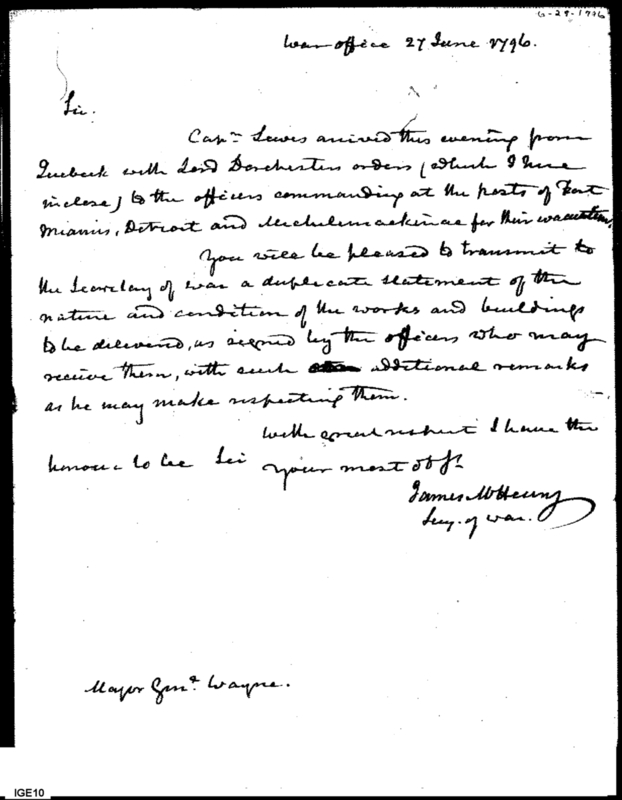 6-29-1796
War office 27 June 1796.
Sir.
Capn. Lewis arrived this evening from
Quebeck with Lord Dorchesters orders (which I here
inclose) to the officers commanding at the posts of Fort
Miamis, Detroit and Michilimackinac for their evacuation.
You will be pleased to transmit to
the Secretary of war a duplicate statement of the
nature and condition of the works and buildings
to be delivered, as signed by the officers who may
receive them, with such additional remarks
as he may make respecting them.
With great respect I have the
honour to be Sir your most obt.
James McHenry
Secy. of war.
Major Genl. Wayne.
IGE10